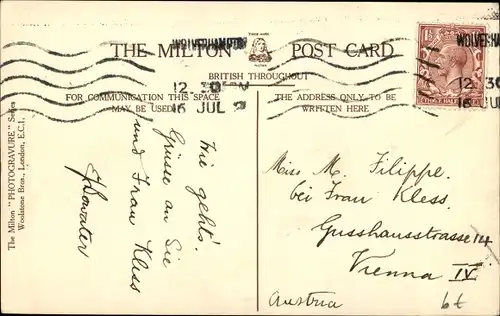 THE MILTON POST CARD
TRADE MARK
MILTON
BRITISH THROUGHOUT
WOLVERHAMPTON
12. 30 PM
16 JUL
WOLVERHAMP
12. 30
16 JUL
FOR COMMUNICATION THIS SPACE
MAY BE USED
THE ADDRESS ONLY TO BE
WRITTEN HERE
The Milton "PHOTOGRAVURE" Series
Woolstone Bros., London, E.C.1.
Wie geht's!
Grüsse an Sie
und Frau Kless
Miss M. Filippe.
bei Frau Kless.
Gusshausstrasse 14
Vienna IV.
Austria